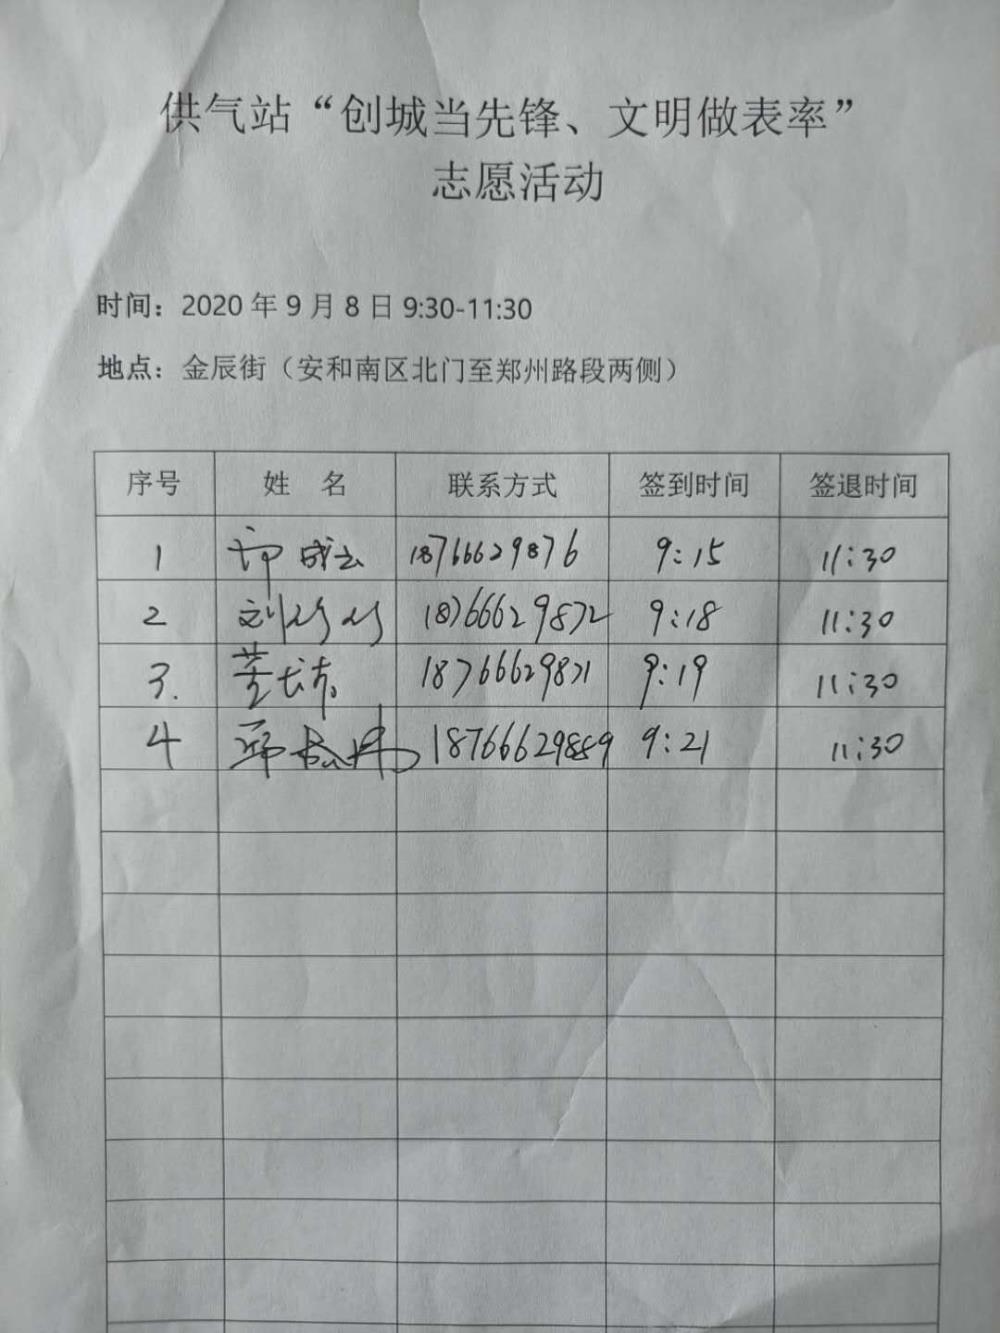 供气站“创城当先锋、文明做表率”
志愿活动
时间：2020 年 9 月 8 日 9:30-11:30
地点：金辰街（安和南区北门至郑州路段两侧）
序号 姓 名 联系方式 签到时间 签退时间
1 18766629876 9:15 11:30
2 刘 18766629872 9:18 11:30
3. 18766629871 9:19 11:30
4 18766629889 9:21 11:30